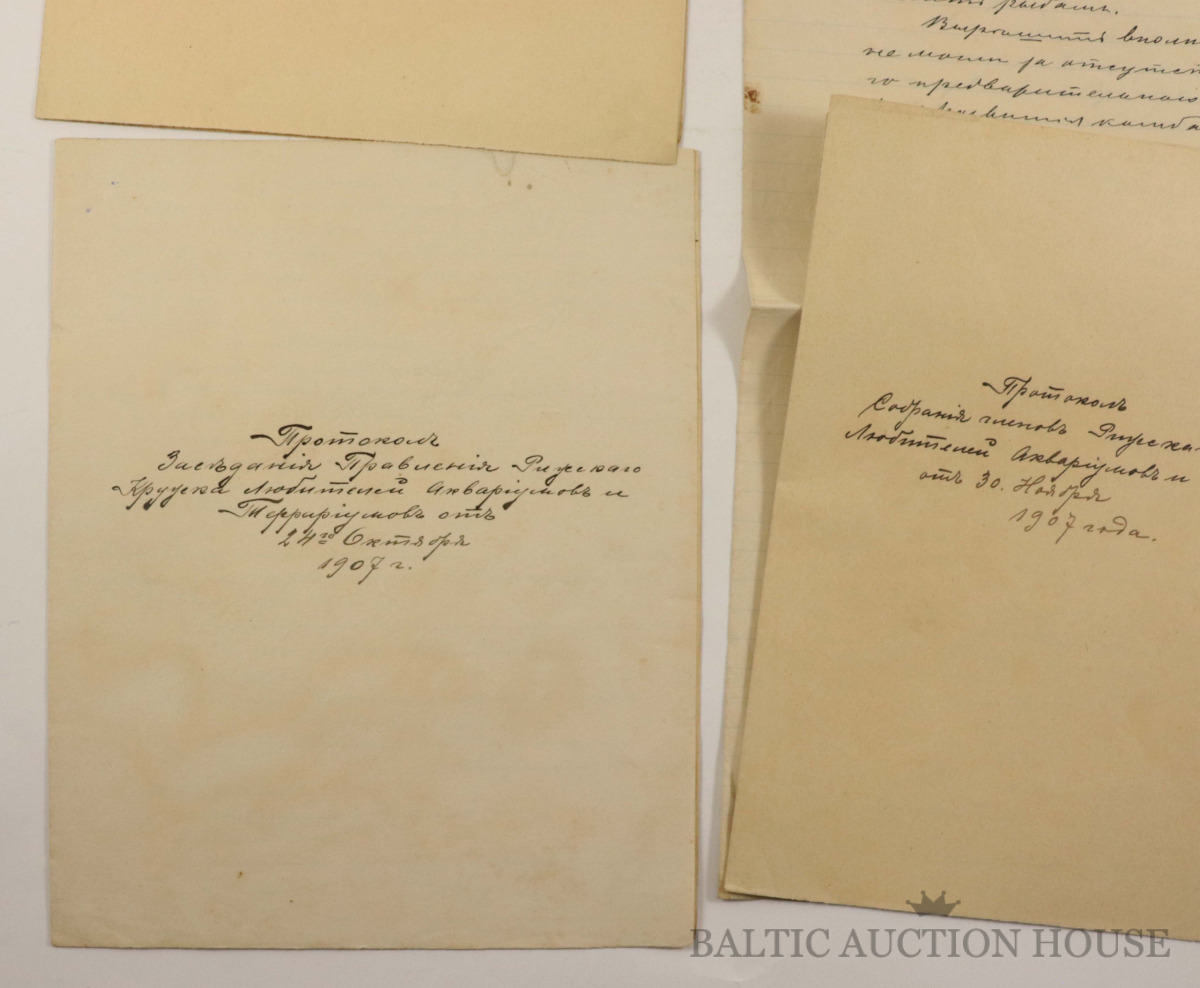 рыбамъ.
не могли за отсутст
го предварительнаго
Протоколъ
Засѣданія Правленія Рижскаго
Кружка Любителей Акваріумовъ и
Террарiумовъ отъ
24го Октября
1907 г.
Протоколъ
Собранія членовъ Рижска
Любителей Акваріумовъ и
отъ 30. Ноября
1907 года.
BALTIC AUCTION HOUSE